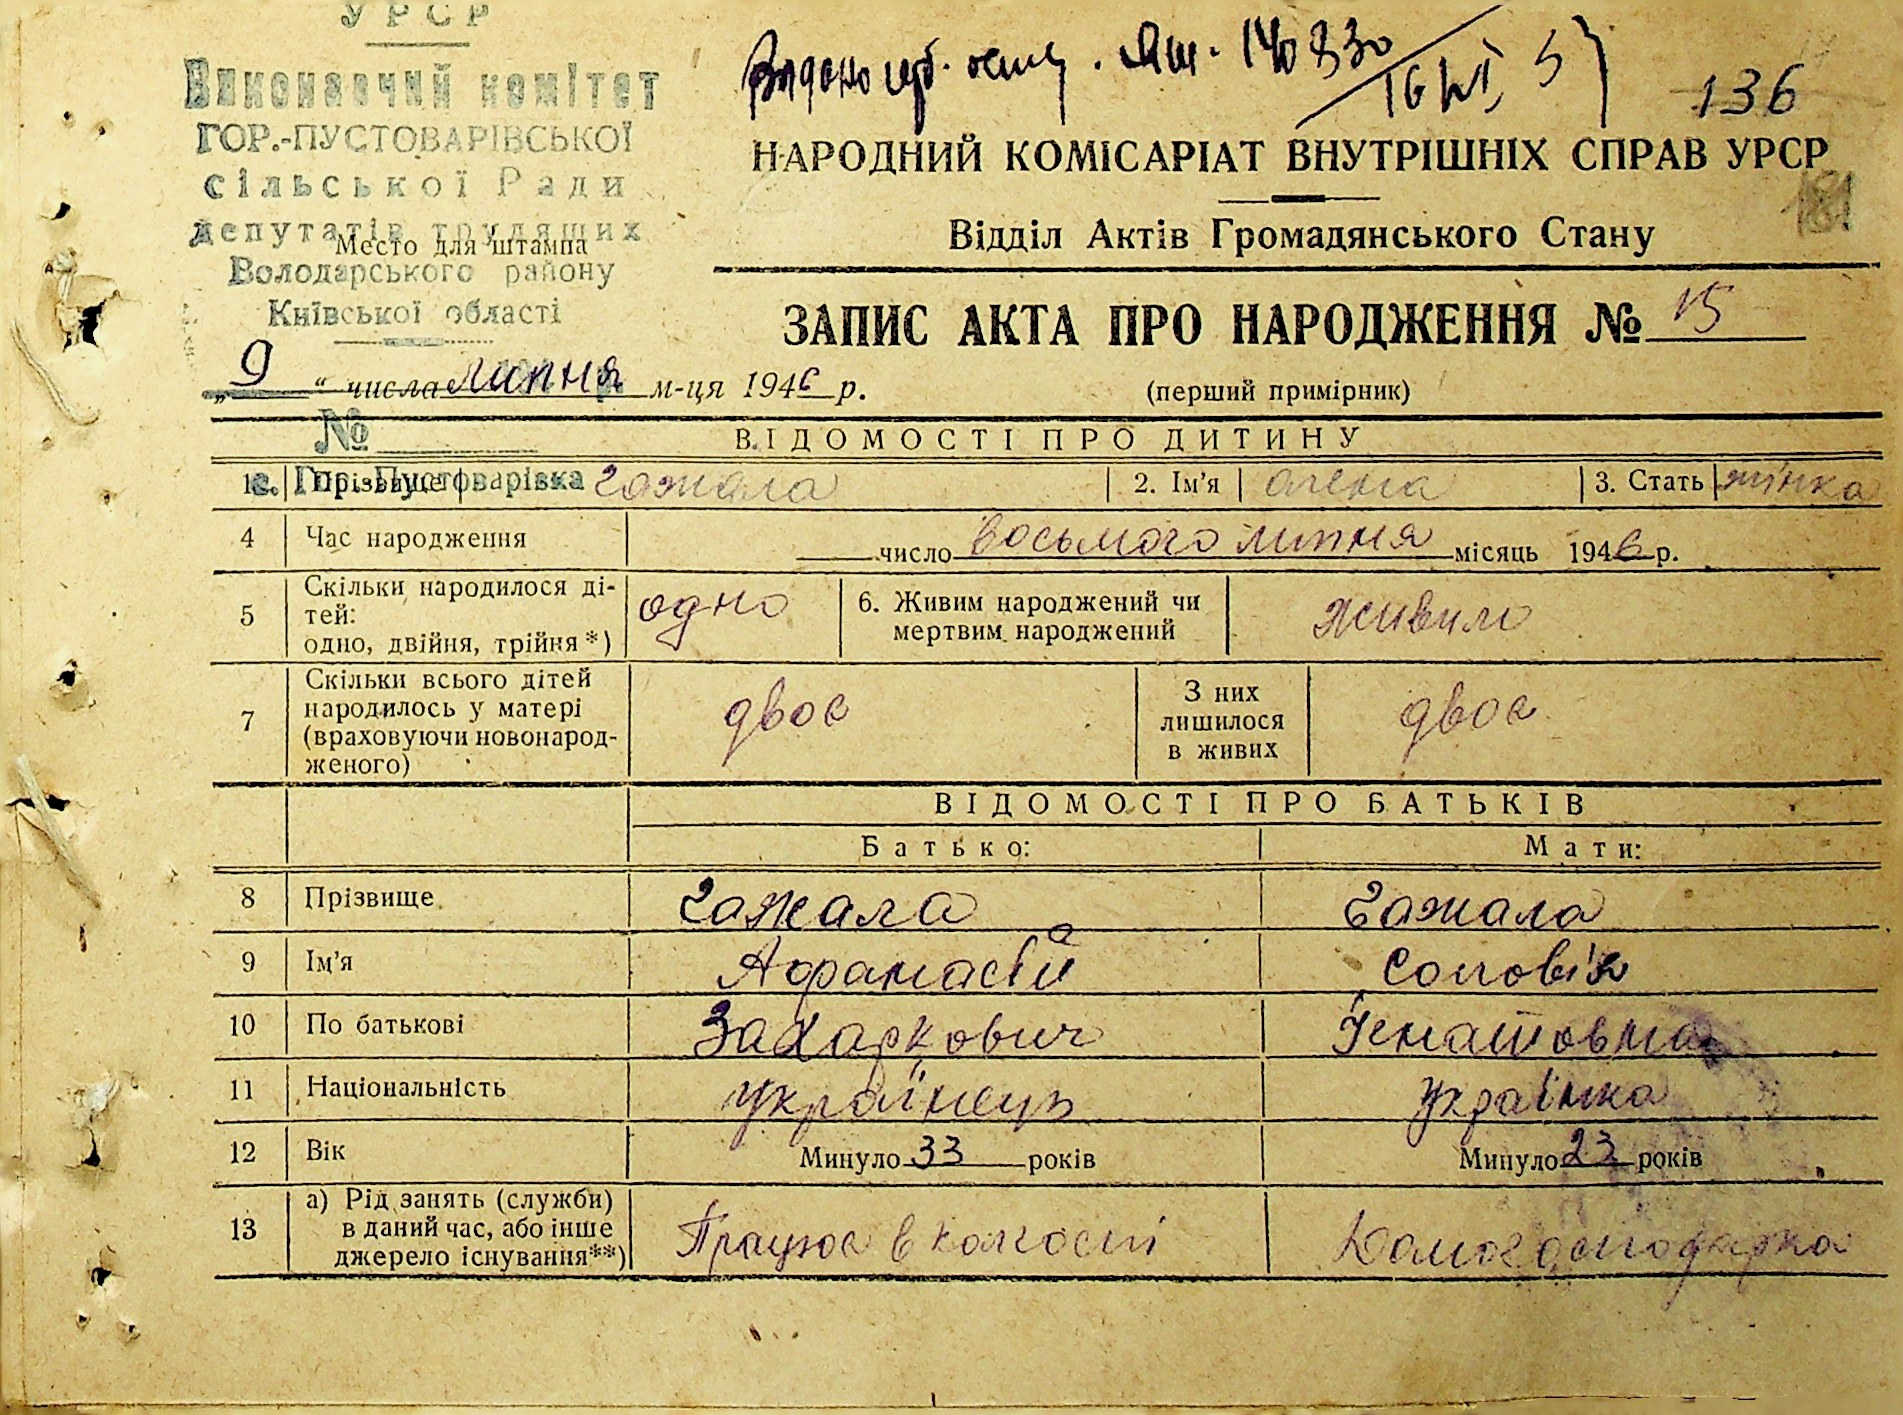 УРСР
Виконавчий комітет
ГОР.-ПУСТОВАРІВСЬКОЇ
сільської Ради
депутатів трудящих
Место для штампа
Володарського району
Київської області
136
НАРОДНИЙ КОМІСАРІАТ ВНУТРІШНІХ СПРАВ УРСР
181
Відділ Актів Громадянського Стану
ЗАПИС АКТА ПРО НАРОДЖЕННЯ № 15
„9“ числа липня м-ця 1946 р.
(перший примірник)
№
ВІДОМОСТІ ПРО ДИТИНУ
с. Гор.-Пустоварівка
1. Прізвище Гажала 2. Ім’я Олена 3. Стать жінка
4 Час народження число восьмого липня місяць 1946 р.
5 Скільки народилося ді-
тей:
одно, двійня, трійня*) одно 6. Живим народжений чи
мертвим народжений живим
7 Скільки всього дітей
народилось у матері
(враховуючи новонарод-
женого) двоє З них
лишилося
в живих двоє
ВІДОМОСТІ ПРО БАТЬКІВ
Батько: Мати:
8 Прізвище Гажала Гажала
9 Ім’я Афанасій Соловія
10 По батькові Захаркович Ігнатовна
11 Національність українець українка
12 Вік Минуло 33 років Минуло 23 років
13 а) Рід занять (служби)
в даний час, або інше
джерело існування**) Працює в колгоспі Домогосподарка